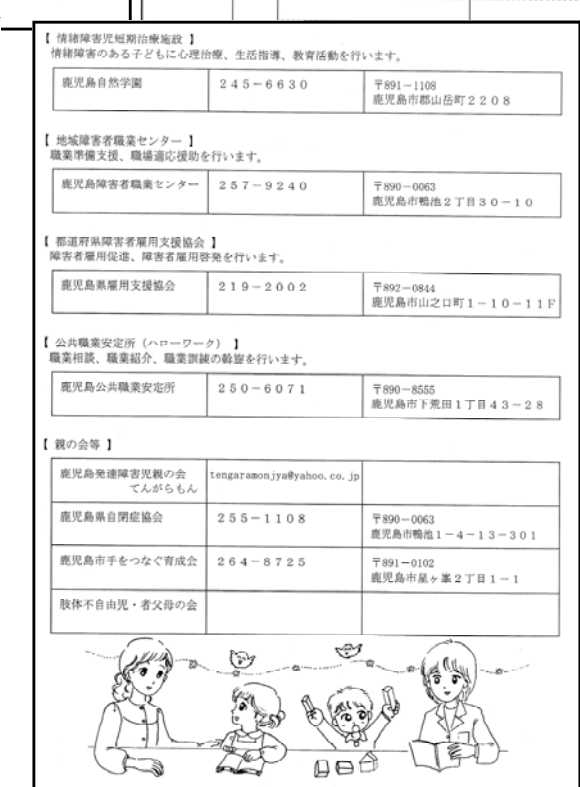 【 情緒障害児短期治療施設 】
情緒障害のある子どもに心理治療、生活指導、教育活動を行います。
鹿児島自然学園
２４５－６６３０
〒891－1108
鹿児島市郡山岳町２２０８
【 地域障害者職業センター 】
職業準備支援、職場適応援助を行います。
鹿児島障害者職業センター
２５７－９２４０
〒890－0063
鹿児島市鴨池２丁目３０－１０
【 都道府県障害者雇用支援協会 】
障害者雇用促進、障害者雇用啓発を行います。
鹿児島県雇用支援協会
２１９－２００２
〒892－0844
鹿児島市山之口町１－１０－１１Ｆ
【 公共職業安定所（ハローワーク） 】
職業相談、職業紹介、職業訓練の斡旋を行います。
鹿児島公共職業安定所
２５０－６０７１
〒890－8555
鹿児島市下荒田１丁目４３－２８
【 親の会等 】
鹿児島発達障害児親の会
てんがらもん
tengaramonjya@yahoo.co.jp
鹿児島県自閉症協会
２５５－１１０８
〒890－0063
鹿児島市鴨池１－４－１３－３０１
鹿児島市手をつなぐ育成会
２６４－８７２５
〒891－0102
鹿児島市星ヶ峯２丁目１－１
肢体不自由児・者父母の会